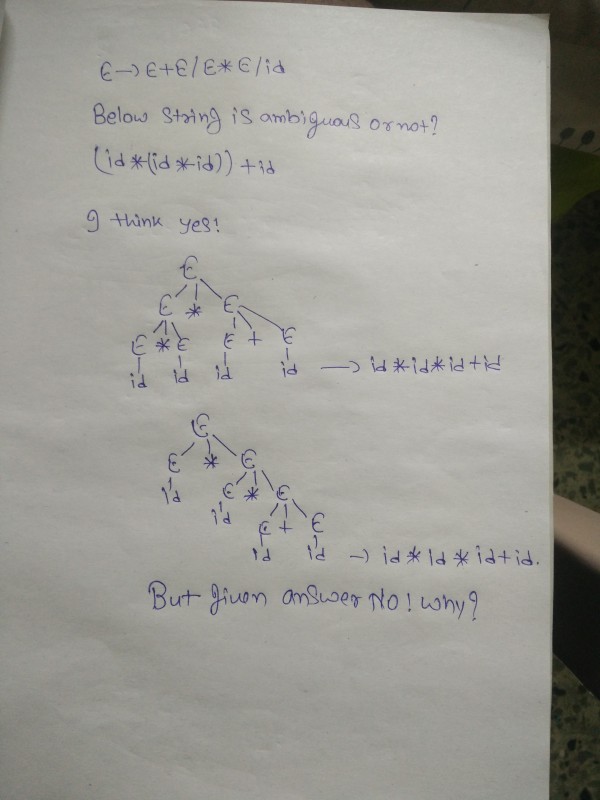 E → E+E / E * E / id
Below string is ambiguous or not?
(id *(id * id)) + id
I think yes!
E
E * E
E * E E + E
id id id id → id * id * id + id
E
E * E
id E * E
id E + E
id id → id * id * id + id.
But given answer NO! why?